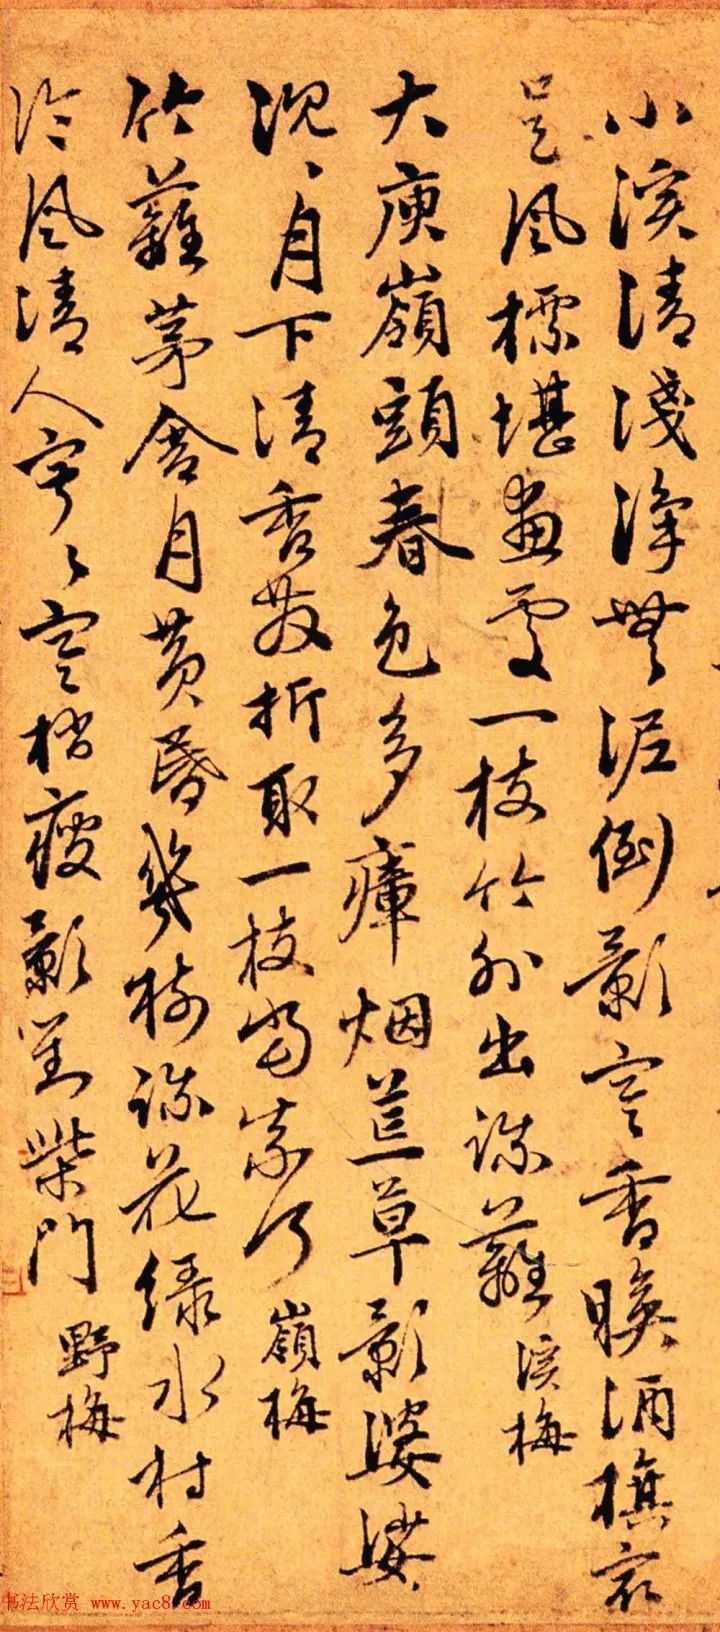 小溪清淺淨無泥倒影寒香映酒旗最
是風標堪畫處一枝竹外出疎籬 溪梅
大庾嶺頭春色多瘴烟荒草影婆娑
沉〻月下清香散折取一枝當奈何 嶺梅
竹籬茅舍月黄昏幾樹疎花綠水村香
冷風清人寂〻寒梢瘦影對柴門 野梅
书法欣赏 www.yac8.com